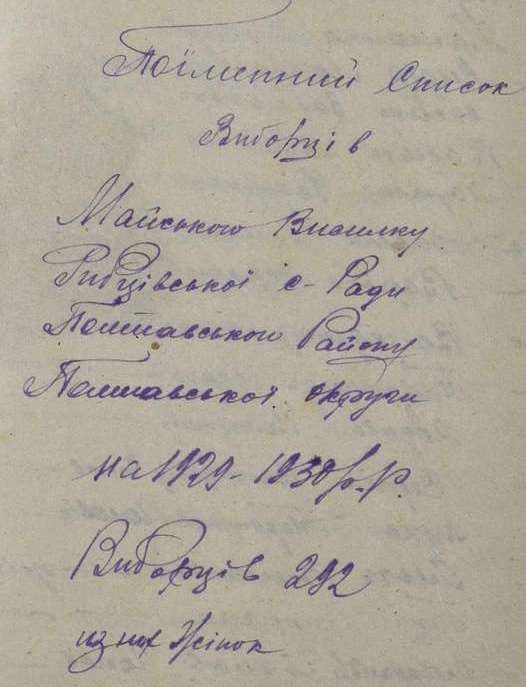 Поіменний Список
Виборців
Майського Висилку
Рибцівської с-Ради
Полтавського Району
Полтавської округи
на 1929-1930 р.р.
Виборців 292
из них Жінок